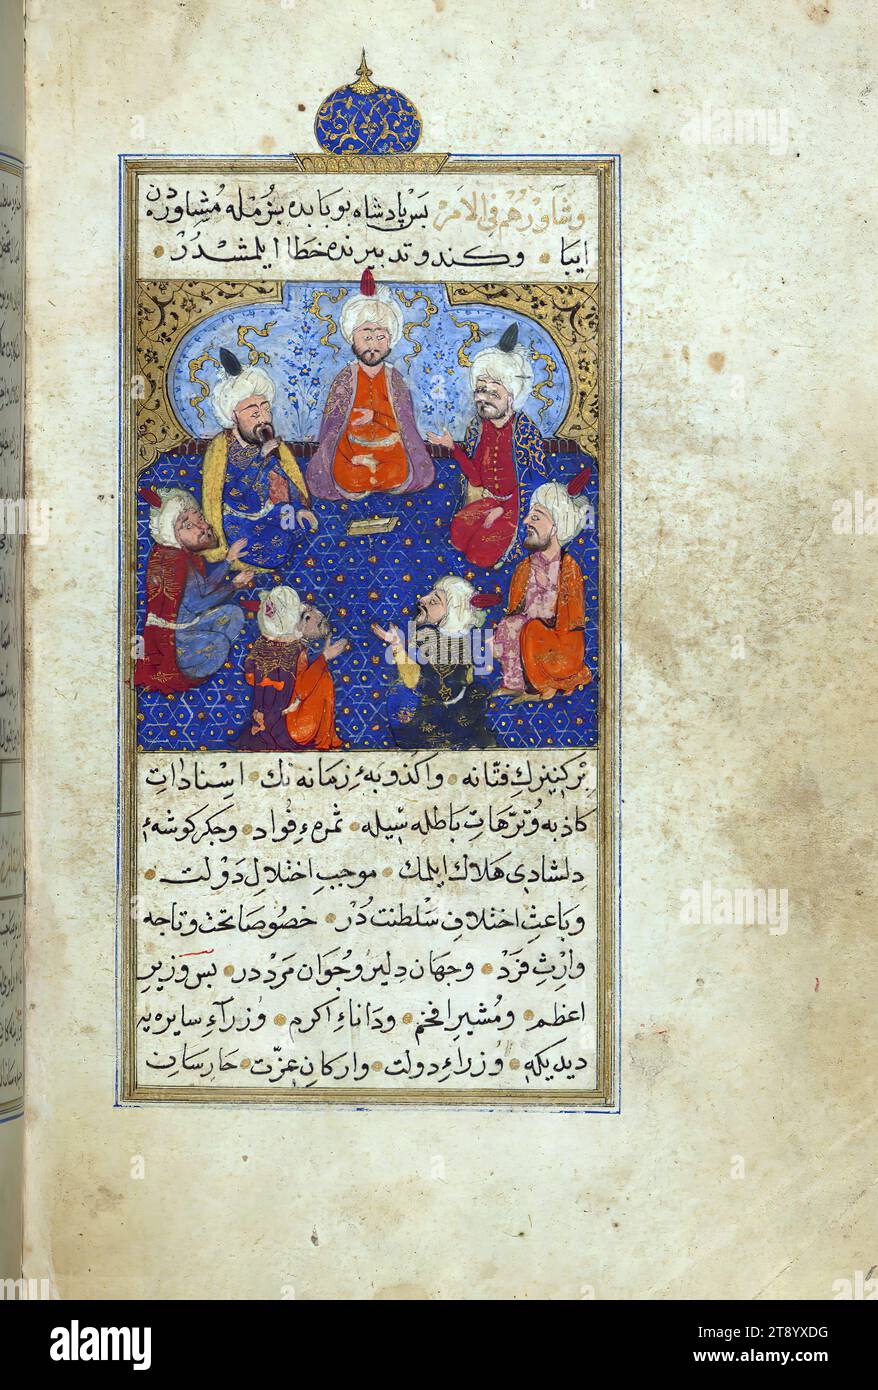 وشاورهم في الامر بس پادشاه بو بابده بزمله مشاوردن
ايبا وكندو تدبيرنده خطا ايلمشدر
بر كنيزك فتانه واكذوبهٔ زمانه نك اسنادات
كاذبه و ترهات باطله سيله ثمرهٔ فواد وجكر كوشهٔ
دلشادي هلاك ايلمك موجب اختلال دولت
وباعث اختلاف سلطنت در خصوصا تخت وتاجه
وارث فرد وجهان دلير وجوان مرد در بس وزير
اعظم ومشير افخم وداناء اكرم وزراء سايره يه
ديديكه وزراء دولت واركان عزت حارسان
alamy
Image ID: 2T8YXDG
www.alamy.com